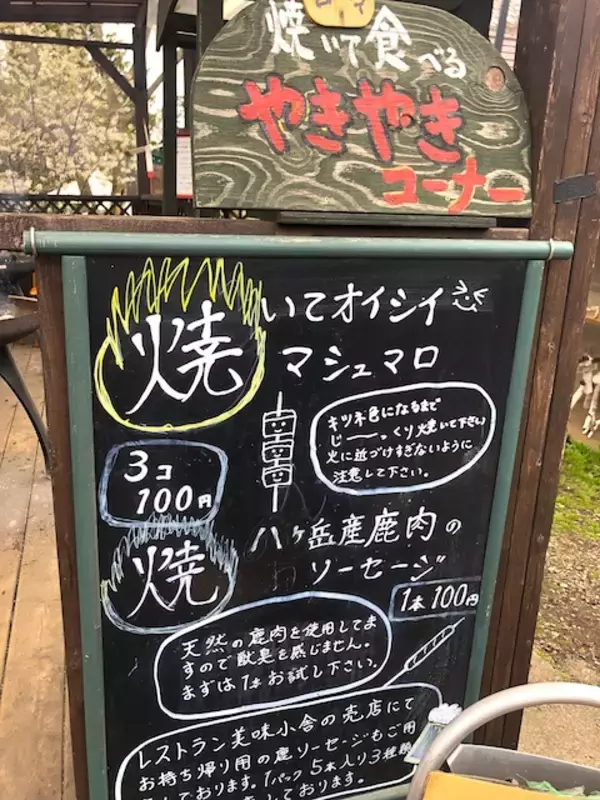 焼いて食べる
やきやき
コーナー
焼いてオイシイ
マシュマロ
キツネ色になるまで
じーーっくり焼いて下さい
火に近づけすぎないように
注意して下さい。
3コ
100円
焼
八ヶ岳産鹿肉の
ソーセージ
1本100円
天然の鹿肉を使用してま
すので獣臭を感じません。
まずは1本お試し下さい。
レストラン美味小舎の売店にて
お持ち帰り用の鹿ソーセージもご用
ております。1パック5本入り3種類
しております。